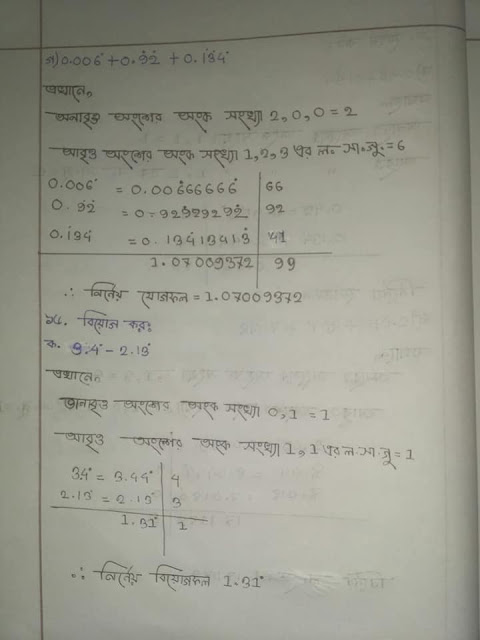 গ) 0.006̇ + 0.9̇2̇ + 0.1̇34̇
এখানে,
অনাবৃত অংশের অংক সংখ্যা 2, 0, 0 = 2
আবৃত অংশের অংক সংখ্যা 1, 2, 3 এর ল. সা. গু. = 6
0.006̇ = 0.006̇66666̇ | 66
0.9̇2̇ = 0.929̇29292̇ | 92
0.1̇34̇ = 0.134̇13413̇ | 41
1.07009372 | 99
∴ নির্ণেয় যোগফল = 1.07009372
১৫. বিয়োগ কর:
ক. 3.4̇ - 2.13̇
এখানে,
অনাবৃত অংশের অংক সংখ্যা 0, 1 = 1
আবৃত অংশের অংক সংখ্যা 1, 1 এর ল. সা. গু = 1
3.4̇ = 3.44̇ | 4
2.13̇ = 2.13̇ | 3
1.31̇ | 1
∴ নির্ণেয় বিয়োগফল 1.31̇